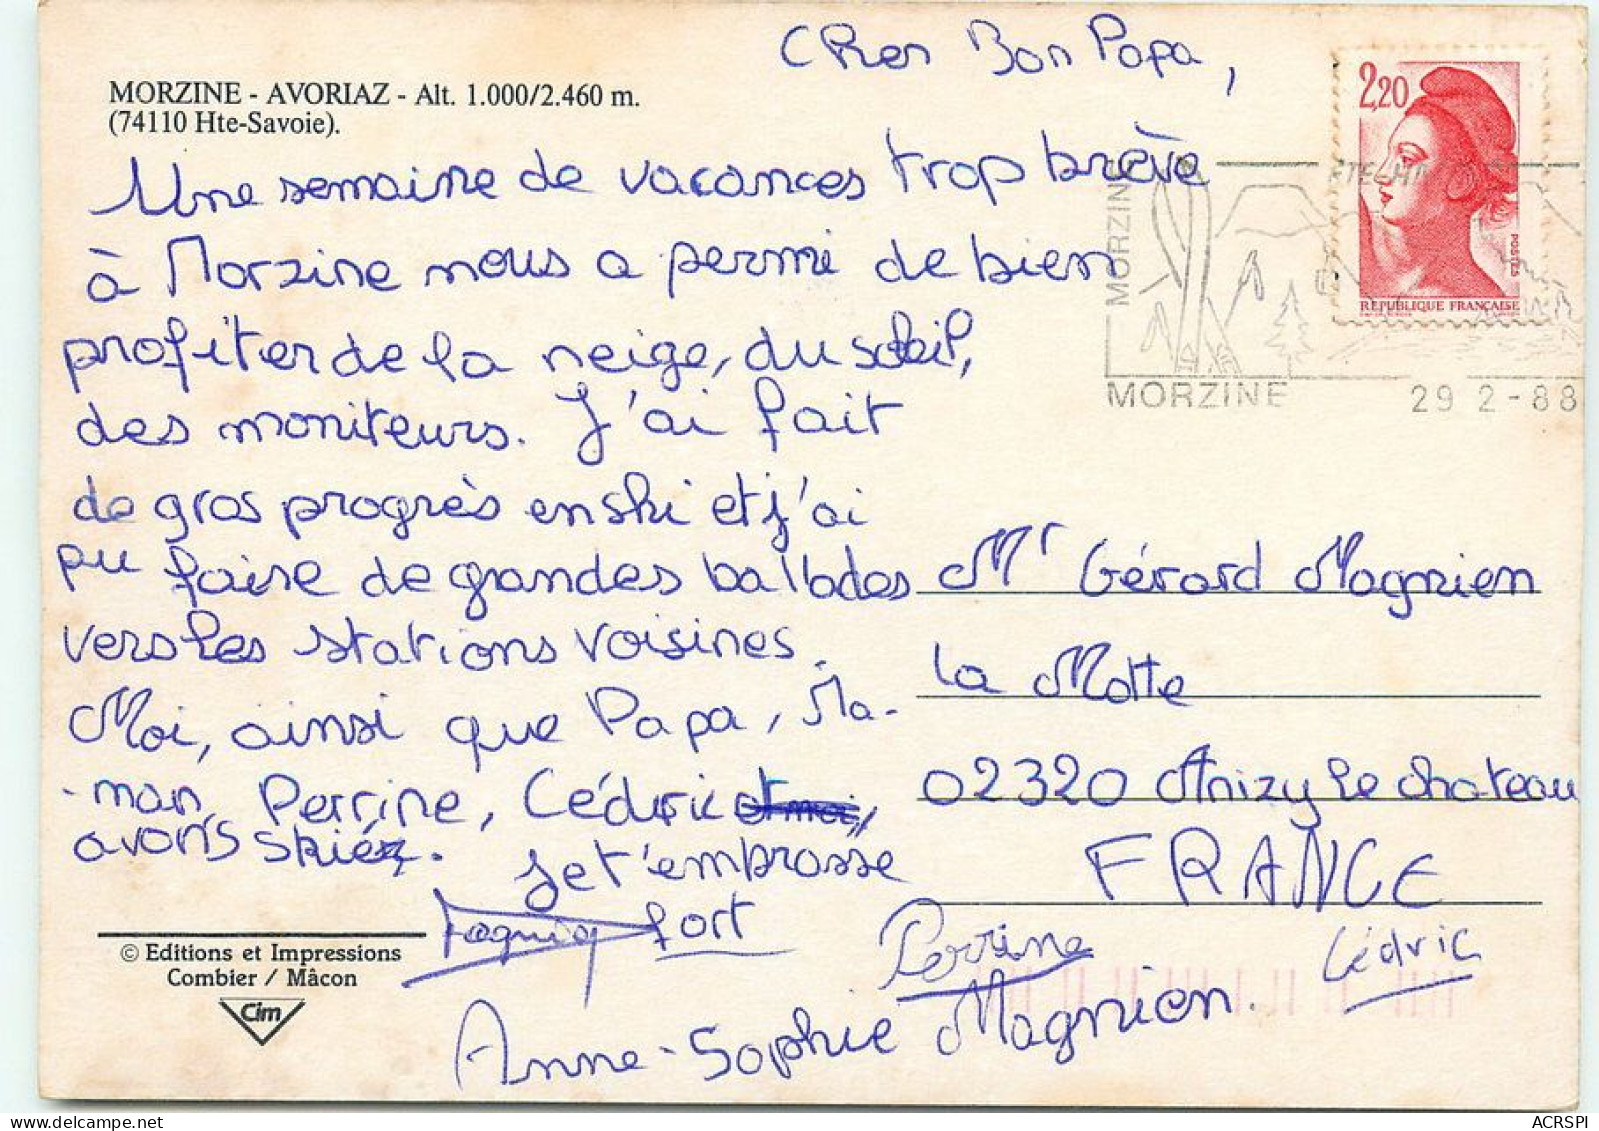 Cher Bon Papa,
MORZINE - AVORIAZ - Alt. 1.000/2.460 m.
(74110 Hte-Savoie).
2,20
POSTES
REPUBLIQUE FRANÇAISE
MORZINE
MORZINE
29 2-88
Une semaine de vacances trop brève
à Morzine nous a permi de bien
profiter de la neige, du soleil,
des moniteurs. J'ai fait
de gros progrès en ski et j'ai
pu faire de grandes ballades
vers les stations voisines.
Moi, ainsi que Papa, Ma-
-man, Perrine, Cédric et moi,
avons skiéz.
Je t'embrasse
fort
Perrine
Cédric
Anne-Sophie Magnien.
Mr Gérard Magnien
La Motte
02320 Anizy le chateau
FRANCE
© Editions et Impressions
Combier / Mâcon
Cim
ACRSPI